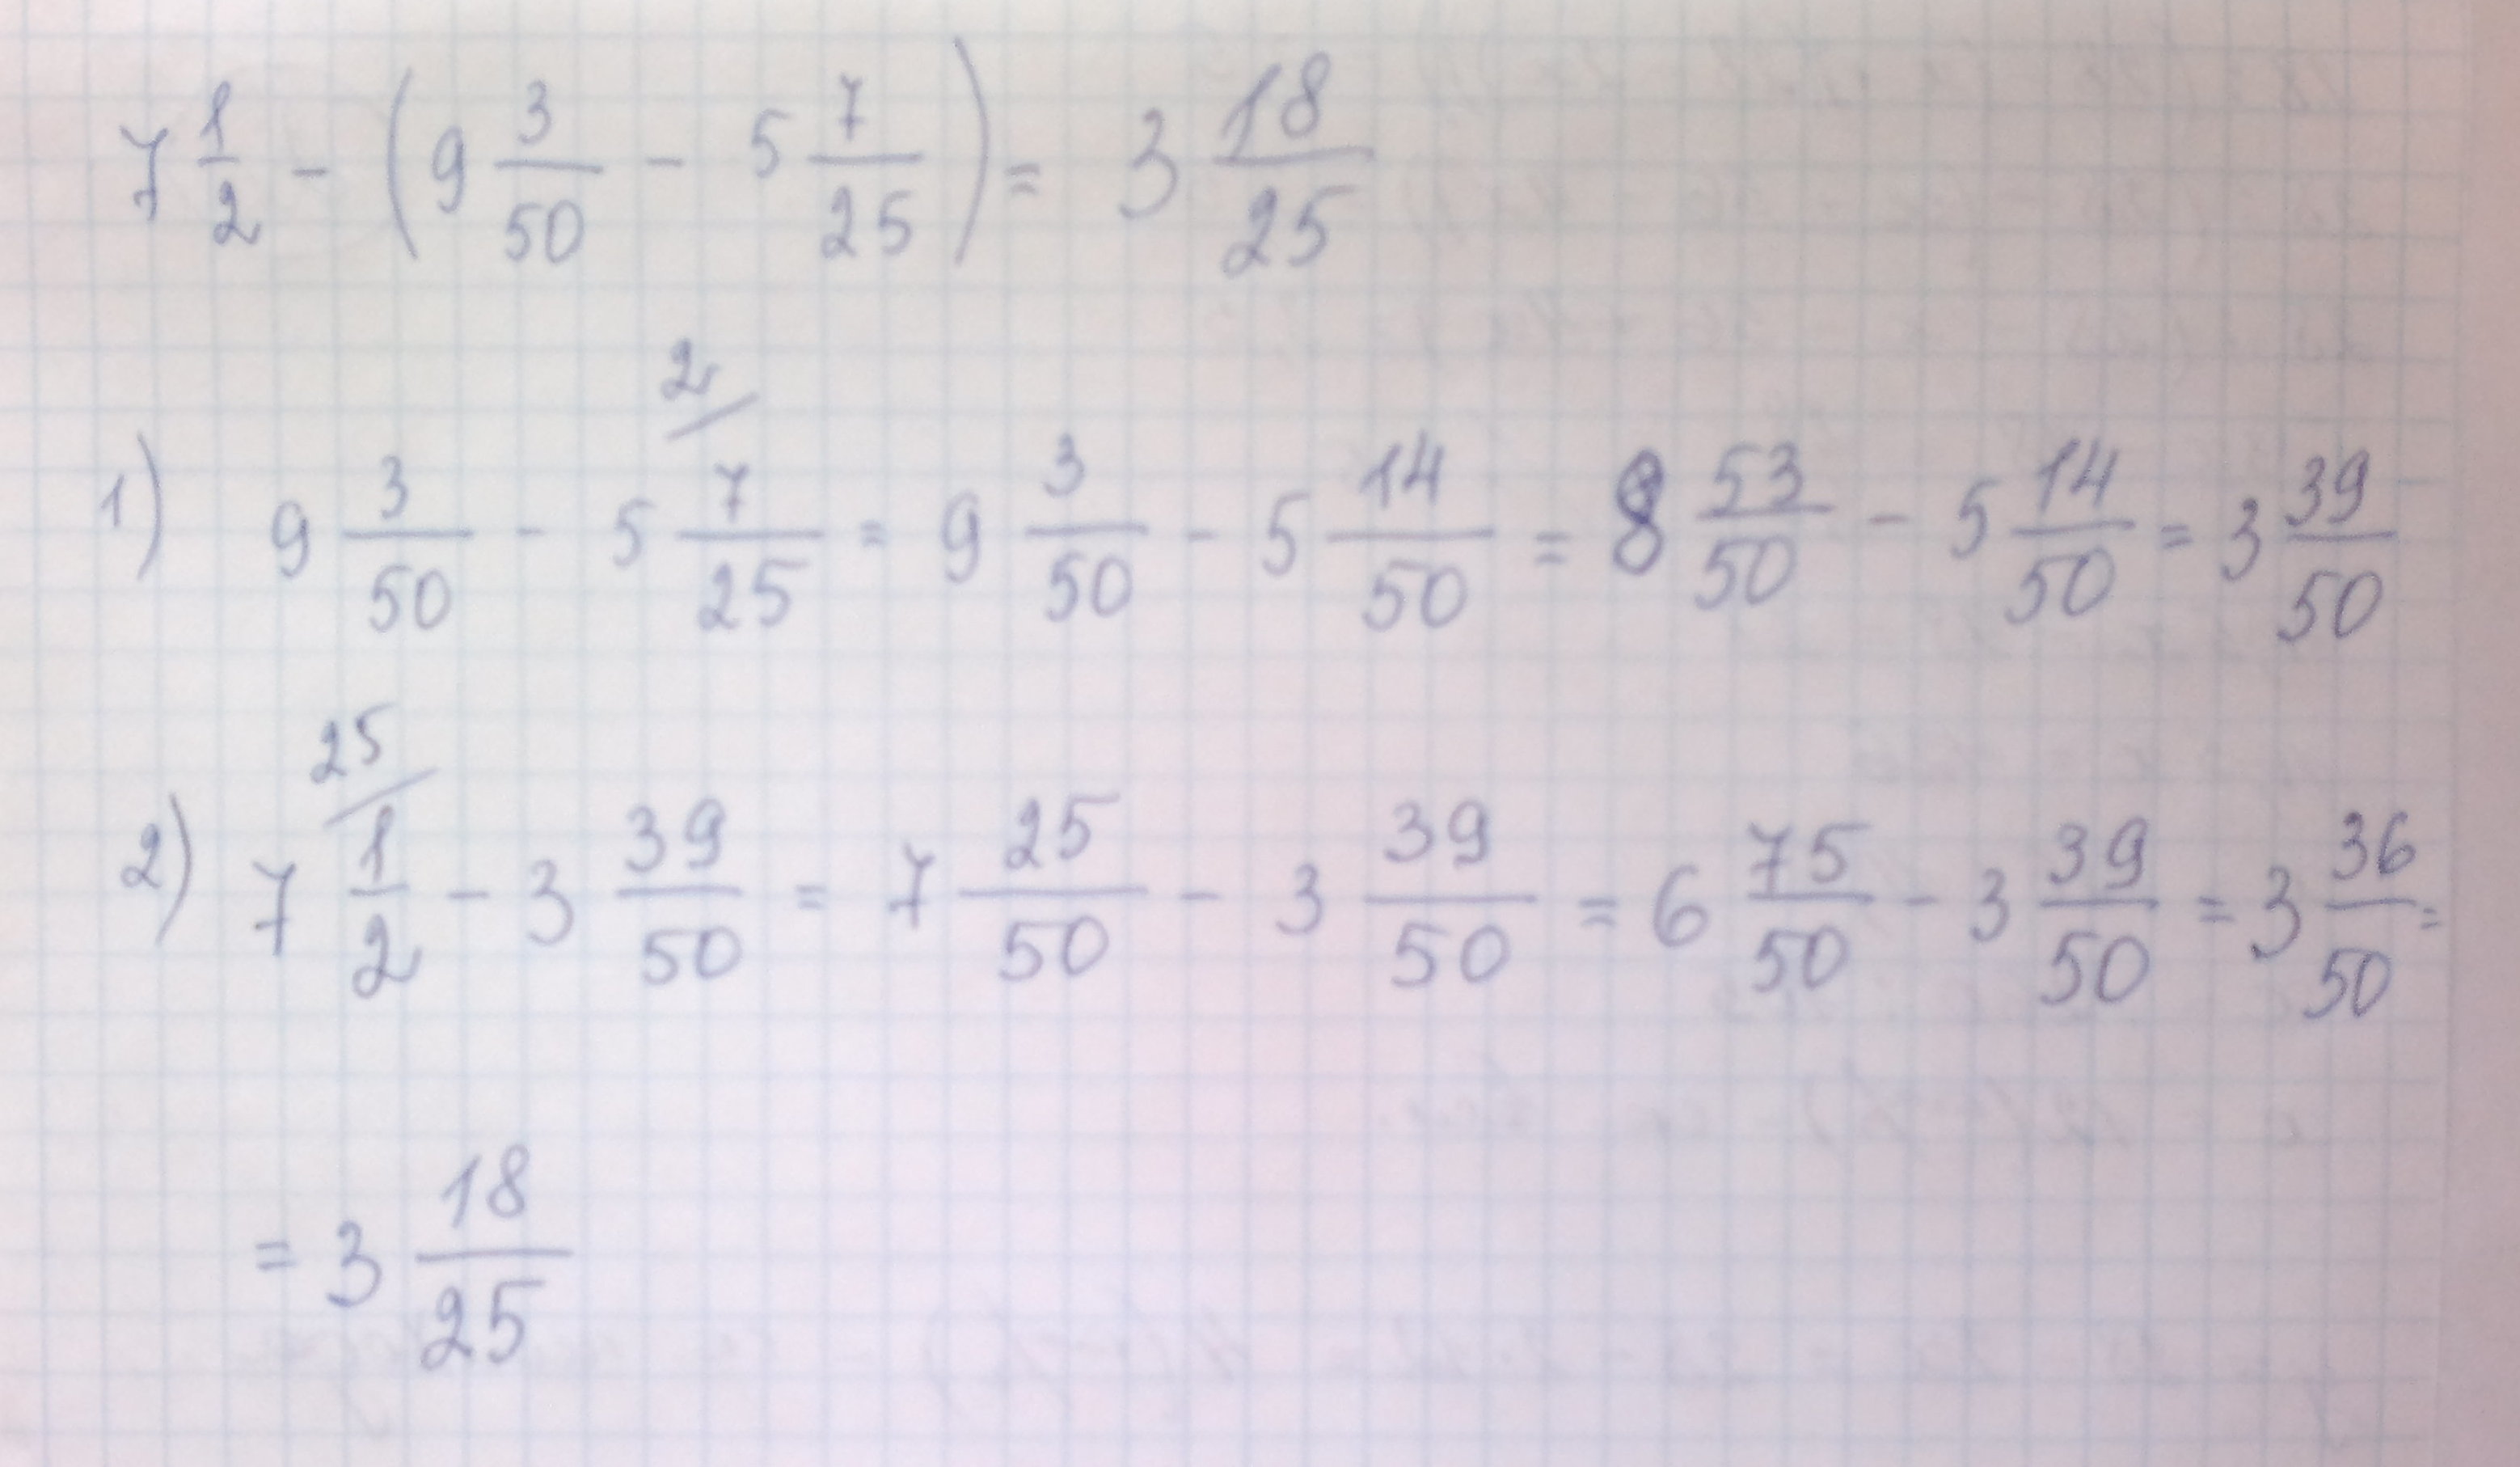 7 1/2 - (9 3/50 - 5 7/25) = 3 18/25
1) 9 3/50 - 5 7/25 2/ = 9 3/50 - 5 14/50 = 8 53/50 - 5 14/50 = 3 39/50
2) 7 1/2 25/ - 3 39/50 = 7 25/50 - 3 39/50 = 6 75/50 - 3 39/50 = 3 36/50 =
= 3 18/25